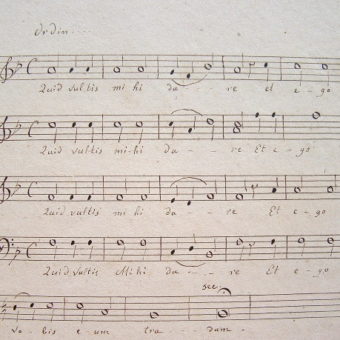 Ordin...
Quid vultis mi hi da - - re et e - go
Quid vultis mi-hi da - - - re Et e - go
Quid vultis mi hi da - - re Et e - go
Quid vultis Mihi da - - - re Et e - go
sec.
vo - bis e um tra - - - dam.